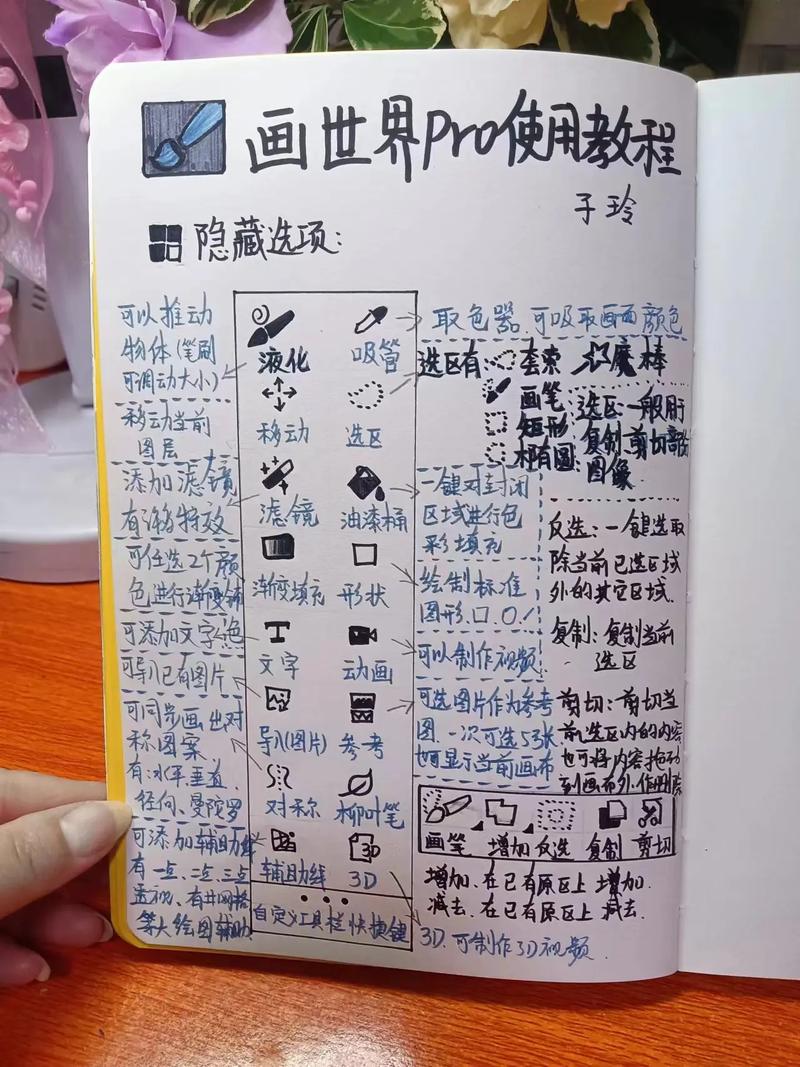 画世界Pro使用教程
子玲
隐藏选项:
可以推动
物体(笔刷
可调动大小)
移动当前
图层
添加滤镜
有消特效
可任选2个颜
色进行渐变铺
可添加文字色
可导入已有图片
可同步画出对
称图案
有:水平.垂直.
径向、曼陀罗
可添加辅助线
有一点、二点、三点
透视、有井网格
等大绘图辅助
液化 吸管
移动 选区
滤镜 油漆桶
渐变填充 形状
文字 动画
导入(图片) 参考
对称 柳叶笔
辅助线 3D
自定义工具栏快捷键
取色器.可吸取画面颜色
选区有: 套索 魔棒
画笔: 选区一般用于
矩形: 复制剪切部份
椭圆: 图像
一键对封闭
区域进行色
彩填充
绘制标准
图形.口.O./
可以制作视频
可选图片作为参考
图.一次可选5张
也可显示当前画布
反选:一键选取
除当前已选区域
外的其它区域.
复制:复制当前
选区
剪切:剪切当
前选区内的内容
也可将内容拖动
到画布外.作删除
画笔 增加 反选 复制 剪切
增加.在已有原区上增加.
减去.在已有原区上减去.
3D.可制作3D视频.